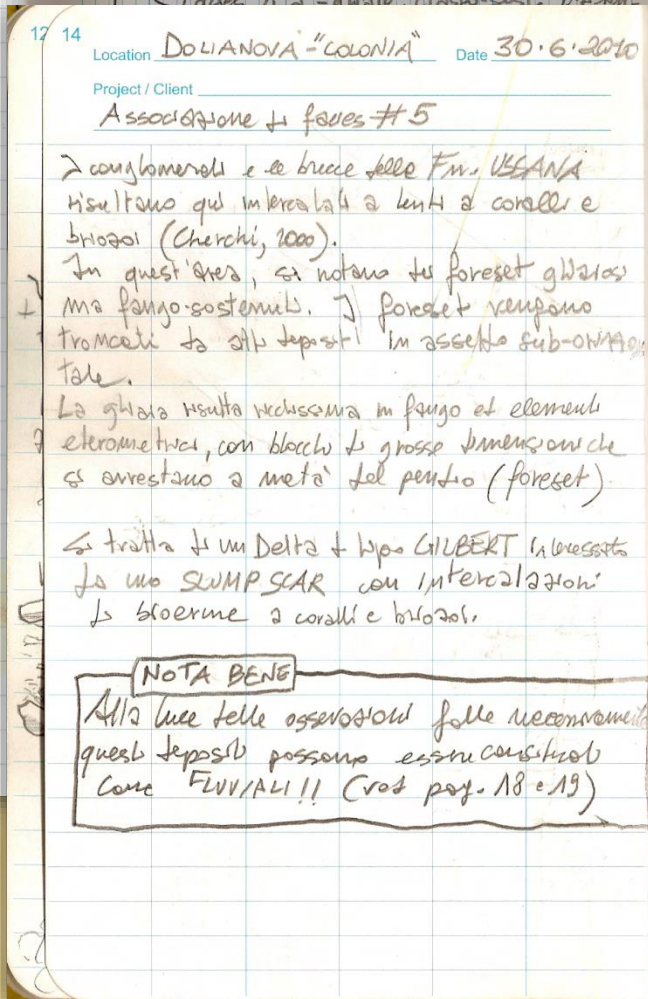 12 14
Location DOLIANOVA-"COLONIA" Date 30.6.2010
Project / Client
Associazione di facies #5
I conglomerati e le brecce della Fm. USSANA
risultano qui intercalati a lenti a coralli e
briozoi (Cherchi, 2000).
In quest'area, si notano dei foreset ghiaiosi
ma fango-sostenuti. I foreset vengono
troncati da altri depositi in assetto sub-orizzon
tale.
La ghiaia risulta ricchissima in fango ed elementi
eterometrici, con blocchi di grosse dimensioni che
si arrestano a metà del pendio (foreset)
Si tratta di un Delta di tipo GILBERT interessato
da uno SLUMP SCAR con intercalazioni
di bioerme a coralli e briozoi.
NOTA BENE
Alla luce delle osservazioni fatte
questi depositi possono essere considerati
come FLUVIALI!! (vedi pag. 18 e 19)